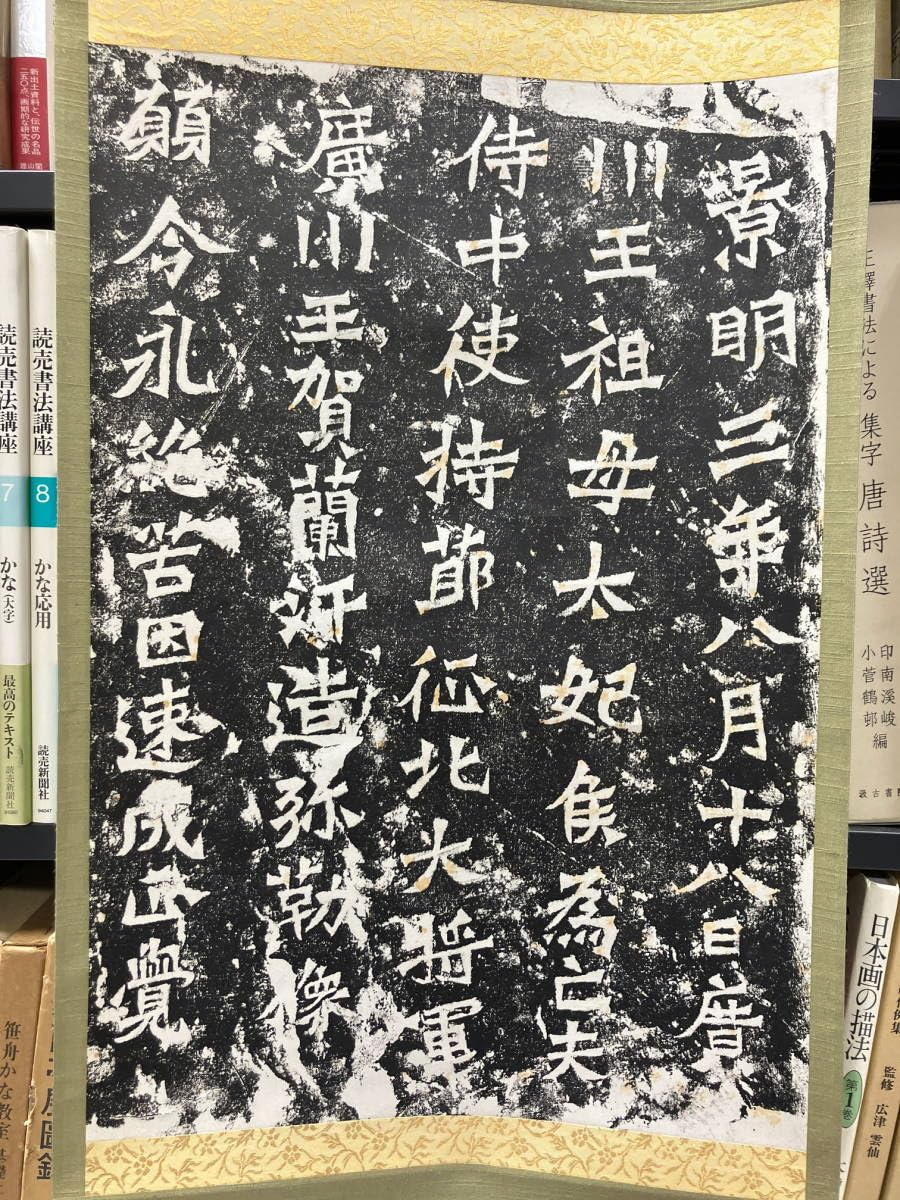 景明三年八月十八日廣
川王祖母太妃侯為亡夫
侍中使持節征北大將軍
廣川王賀蘭汗造弥勒像
願令永絶苦因速成正覺
新出土資料と、伝世の名品
二五〇点、画期的な研究成果
読売書法講座
7
かな(大字)
最高のテキスト
読売新聞社
読売書法講座
8
かな応用
読売新聞社
94047
書法による 集字 唐詩選
印南溪峻
小菅鶴邨
編
汲古書
日本画の描法
第1巻
監修 広津雲仙
笹舟かな教室